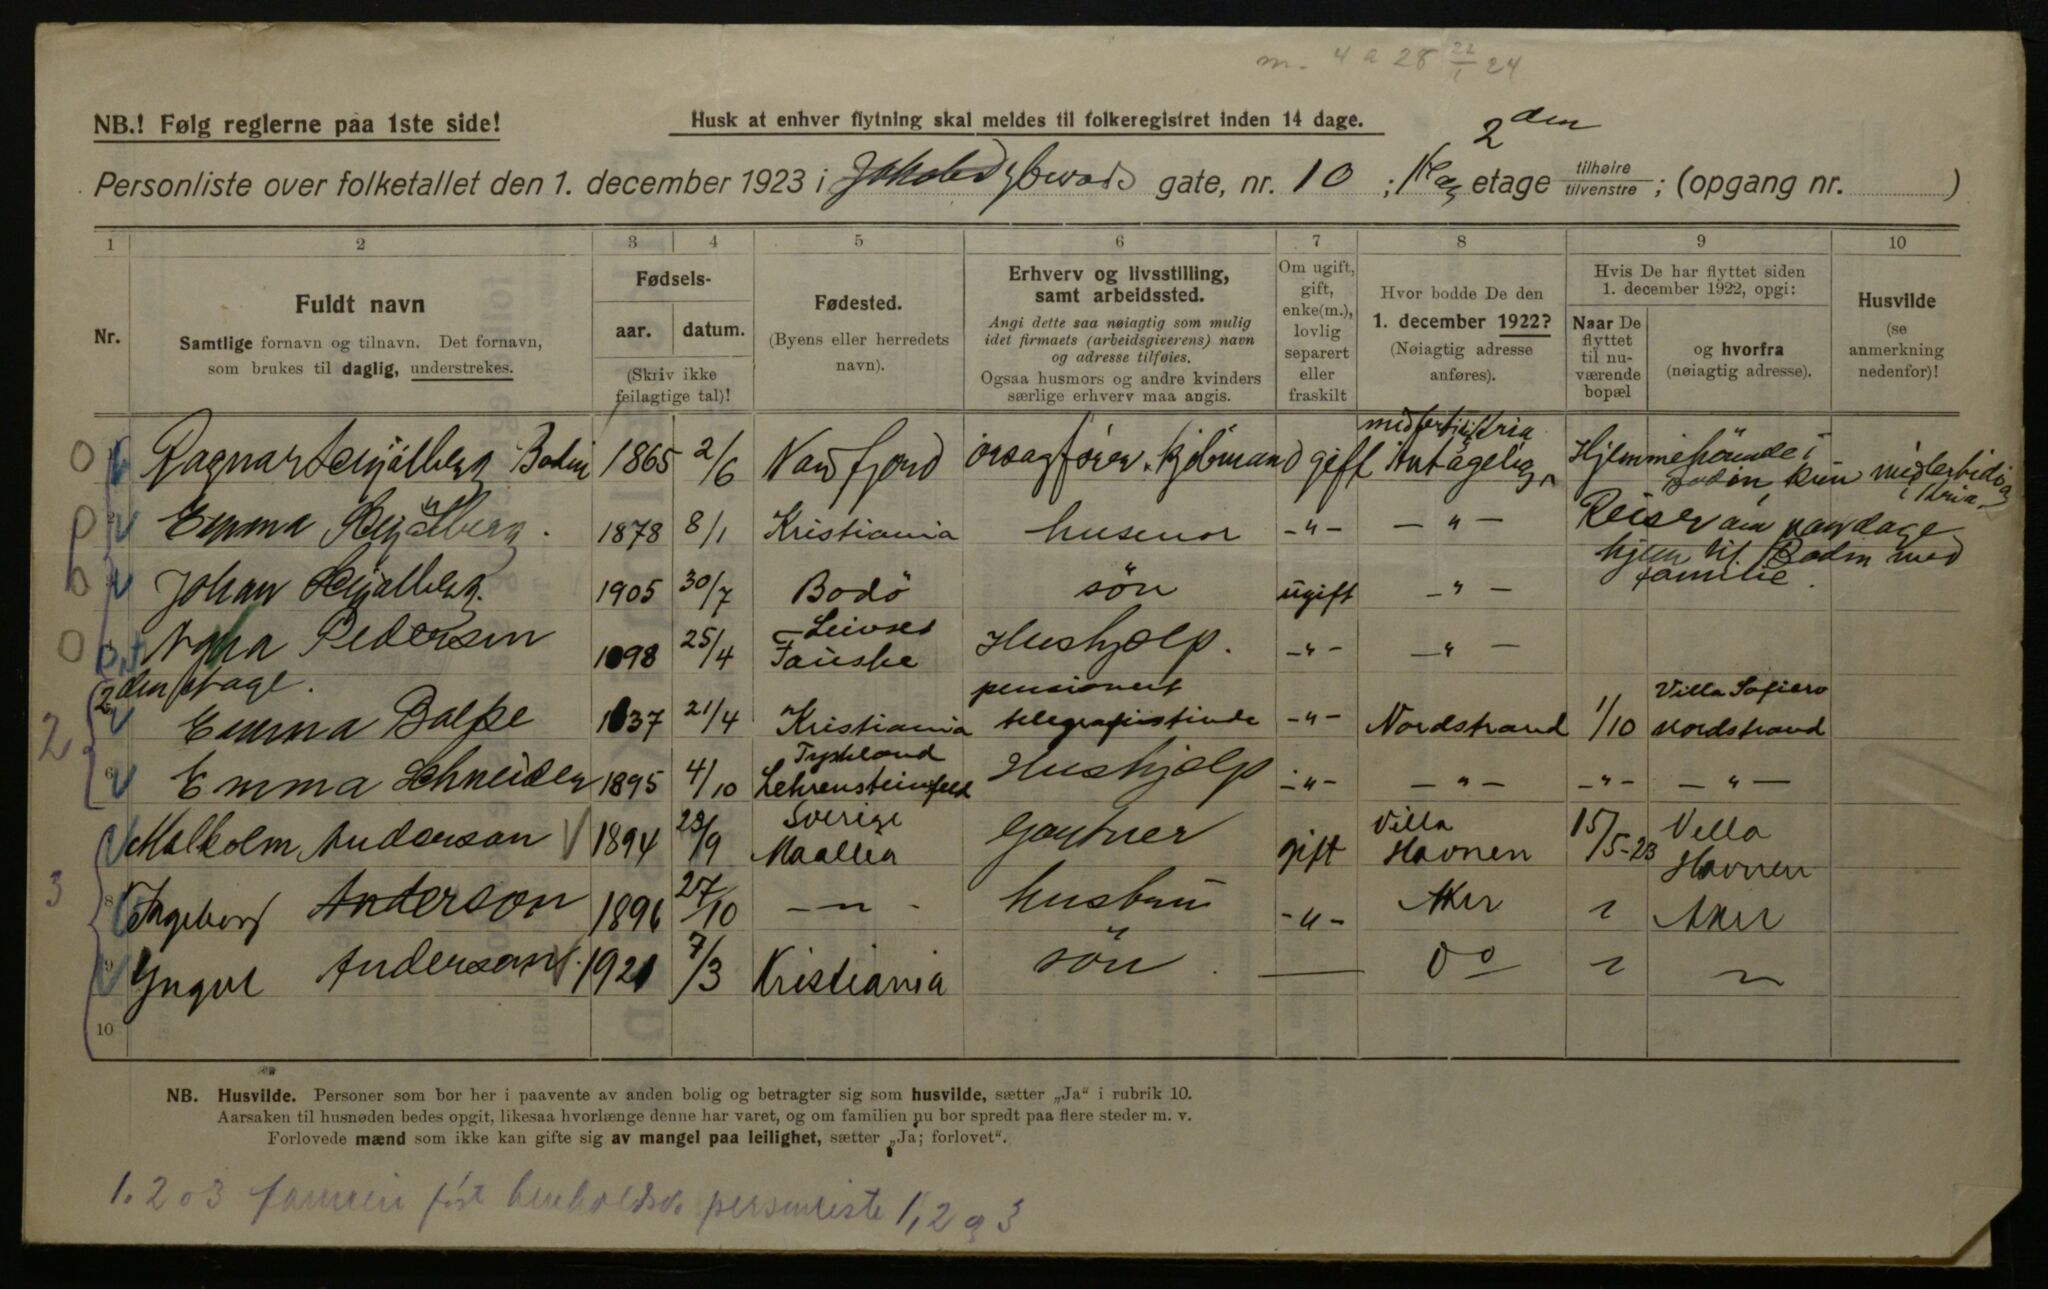 m. 4 a 28 22/1 24
NB.! Følg reglerne paa 1ste side!
Husk at enhver flytning skal meldes til folkeregistret inden 14 dage.
2 den
Personliste over folketallet den 1. december 1923 i gate, nr. 10 ; etage tilhøire tilvenstre ; (opgang nr. )
1 2 3 4 5 6 7 8 9 10
Nr.
Fuldt navn
Samtlige fornavn og tilnavn. Det fornavn,
som brukes til daglig, understrekes.
Fødsels-
aar. datum.
(Skriv ikke
feilagtige tal)!
Fødested.
(Byens eller herredets
navn).
Erhverv og livsstilling,
samt arbeidssted.
Angi dette saa nøiagtig som mulig
idet firmaets (arbeidsgiverens) navn
og adresse tilføies.
Ogsaa husmors og andre kvinders
særlige erhverv maa angis.
Om ugift,
gift,
enke(m.),
lovlig
separert
eller
fraskilt
Hvor bodde De den
1. december 1922?
(Nøiagtig adresse
anføres).
Hvis De har flyttet siden
1. december 1922, opgi:
Naar De
flyttet
til nu-
værende
bopæl
og hvorfra
(nøiagtig adresse).
Husvilde
(se
anmerkning
nedenfor)!
Ragnar Schjølberg Bodin 1865 2/6 kjøbmand gift Hjemmehörende i
Bodin, kun midlertidig
i Kria.
Emma Schjølberg. 1878 8/1 Kristiania husmor -"- -"- Reiser om par dage
hjem til Bodin med
familie.
Johan Schjølberg. 1905 30/7 Bodö sön ugift -"-
Pedersen 1898 25/4 Leivset Fauske Hushjælp. -"- -"-
2den etage.
2 Emma Balke 1837 21/4 Kristiania pensionert telegrafistinde -"- Nordstrand 1/10 Villa Sofiero Nordstrand
6 Emma Schneider 1895 4/10 Tyskland Lehrensteinsfeld Hushjælp -"- -"- -"- -"-
Malkolm Anderson 1894 23/9 Sverige Gartner gift Villa Havnen 15/5-23 Villa Havnen
3 8 Ingeborg Anderson 1896 27/10 -"- hustru -"- Aker " Aker
9 Yngve Anderson. 1921 7/3 Kristiania sön. — Do " "
10
NB. Husvilde. Personer som bor her i paavente av anden bolig og betragter sig som husvilde, sætter „Ja“ i rubrik 10.
Aarsaken til husnøden bedes opgit, likesaa hvorlænge denne har varet, og om familien nu bor spredt paa flere steder m. v.
Forlovede mænd som ikke kan gifte sig av mangel paa leilighet, sætter „Ja; forlovet“.
1. 2 o 3 personliste 1, 2 og 3